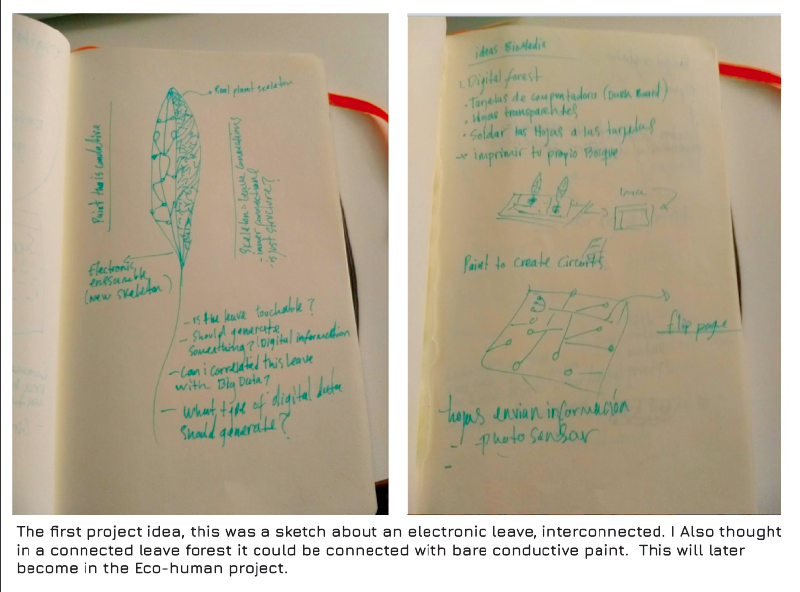 Real plant skeleton
Paint tha is conductive
Skeleton = leave connections
- inner connections
- is just structure?
Electronic
(new skeleton)
- Is the leave touchable?
- Should generate
something? Digital information
- Can i correlated this leave
with Big Data?
- What type of digital data
should generate?
ideas BioMedia
1. Digital forest
• Tarjetas de computadora (Dush Board)
• Hojas transparentes
• Soldar las Hojas a las tarjetas
imprimir tu propio Bosque
Paint to create circuits
flip page
hojas envian información
- photo sensar
-
The first project idea, this was a sketch about an electronic leave, interconnected. I Also thought
in a connected leave forest it could be connected with bare conductive paint.  This will later
become in the Eco-human project.